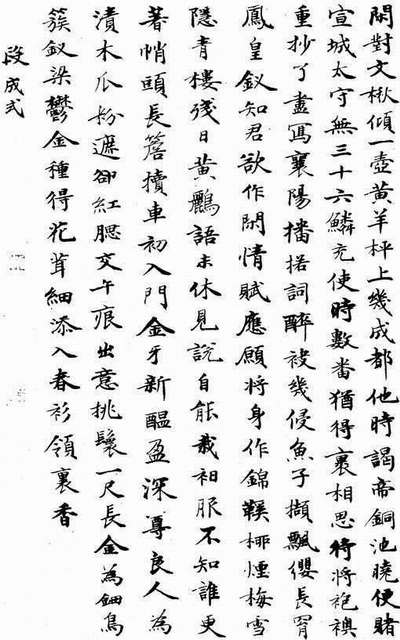 閑對文楸傾一壺黃羊枰上幾成都他時謁帝銅池曉便賭
宣城太守無三十六鱗充使時數番猶得裹相思待將袍襖
重抄了盡寫襄陽播掿詞醉袂幾侵魚子擷飄纓長罥
鳳皇釵知君欲作閑情賦應願將身作錦鞵栁煙梅雪
隱青樓殘日黃鸝語未休見說自能裁袙服不知誰更
著帩頭長簷犢車初入門金牙新醞盈深尊良人為
漬木瓜粉遮卻紅腮交午痕出意挑鬟一尺長金為鈿鳥
簇釵梁鬱金種得花茸細添入春衫領裏香
段成式